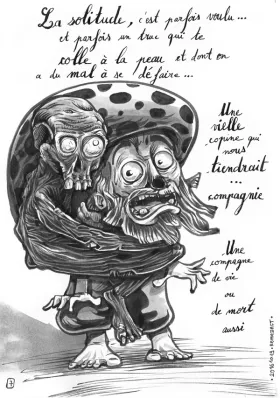 La solitude, c'est parfois voulu...
et parfois un truc qui te
colle à la peau et dont on
a du mal à se défaire...
Une
vielle
copine qui
nous
tiendrait
...
compagnie
Une
compagne
de vie
ou
de mort
aussi